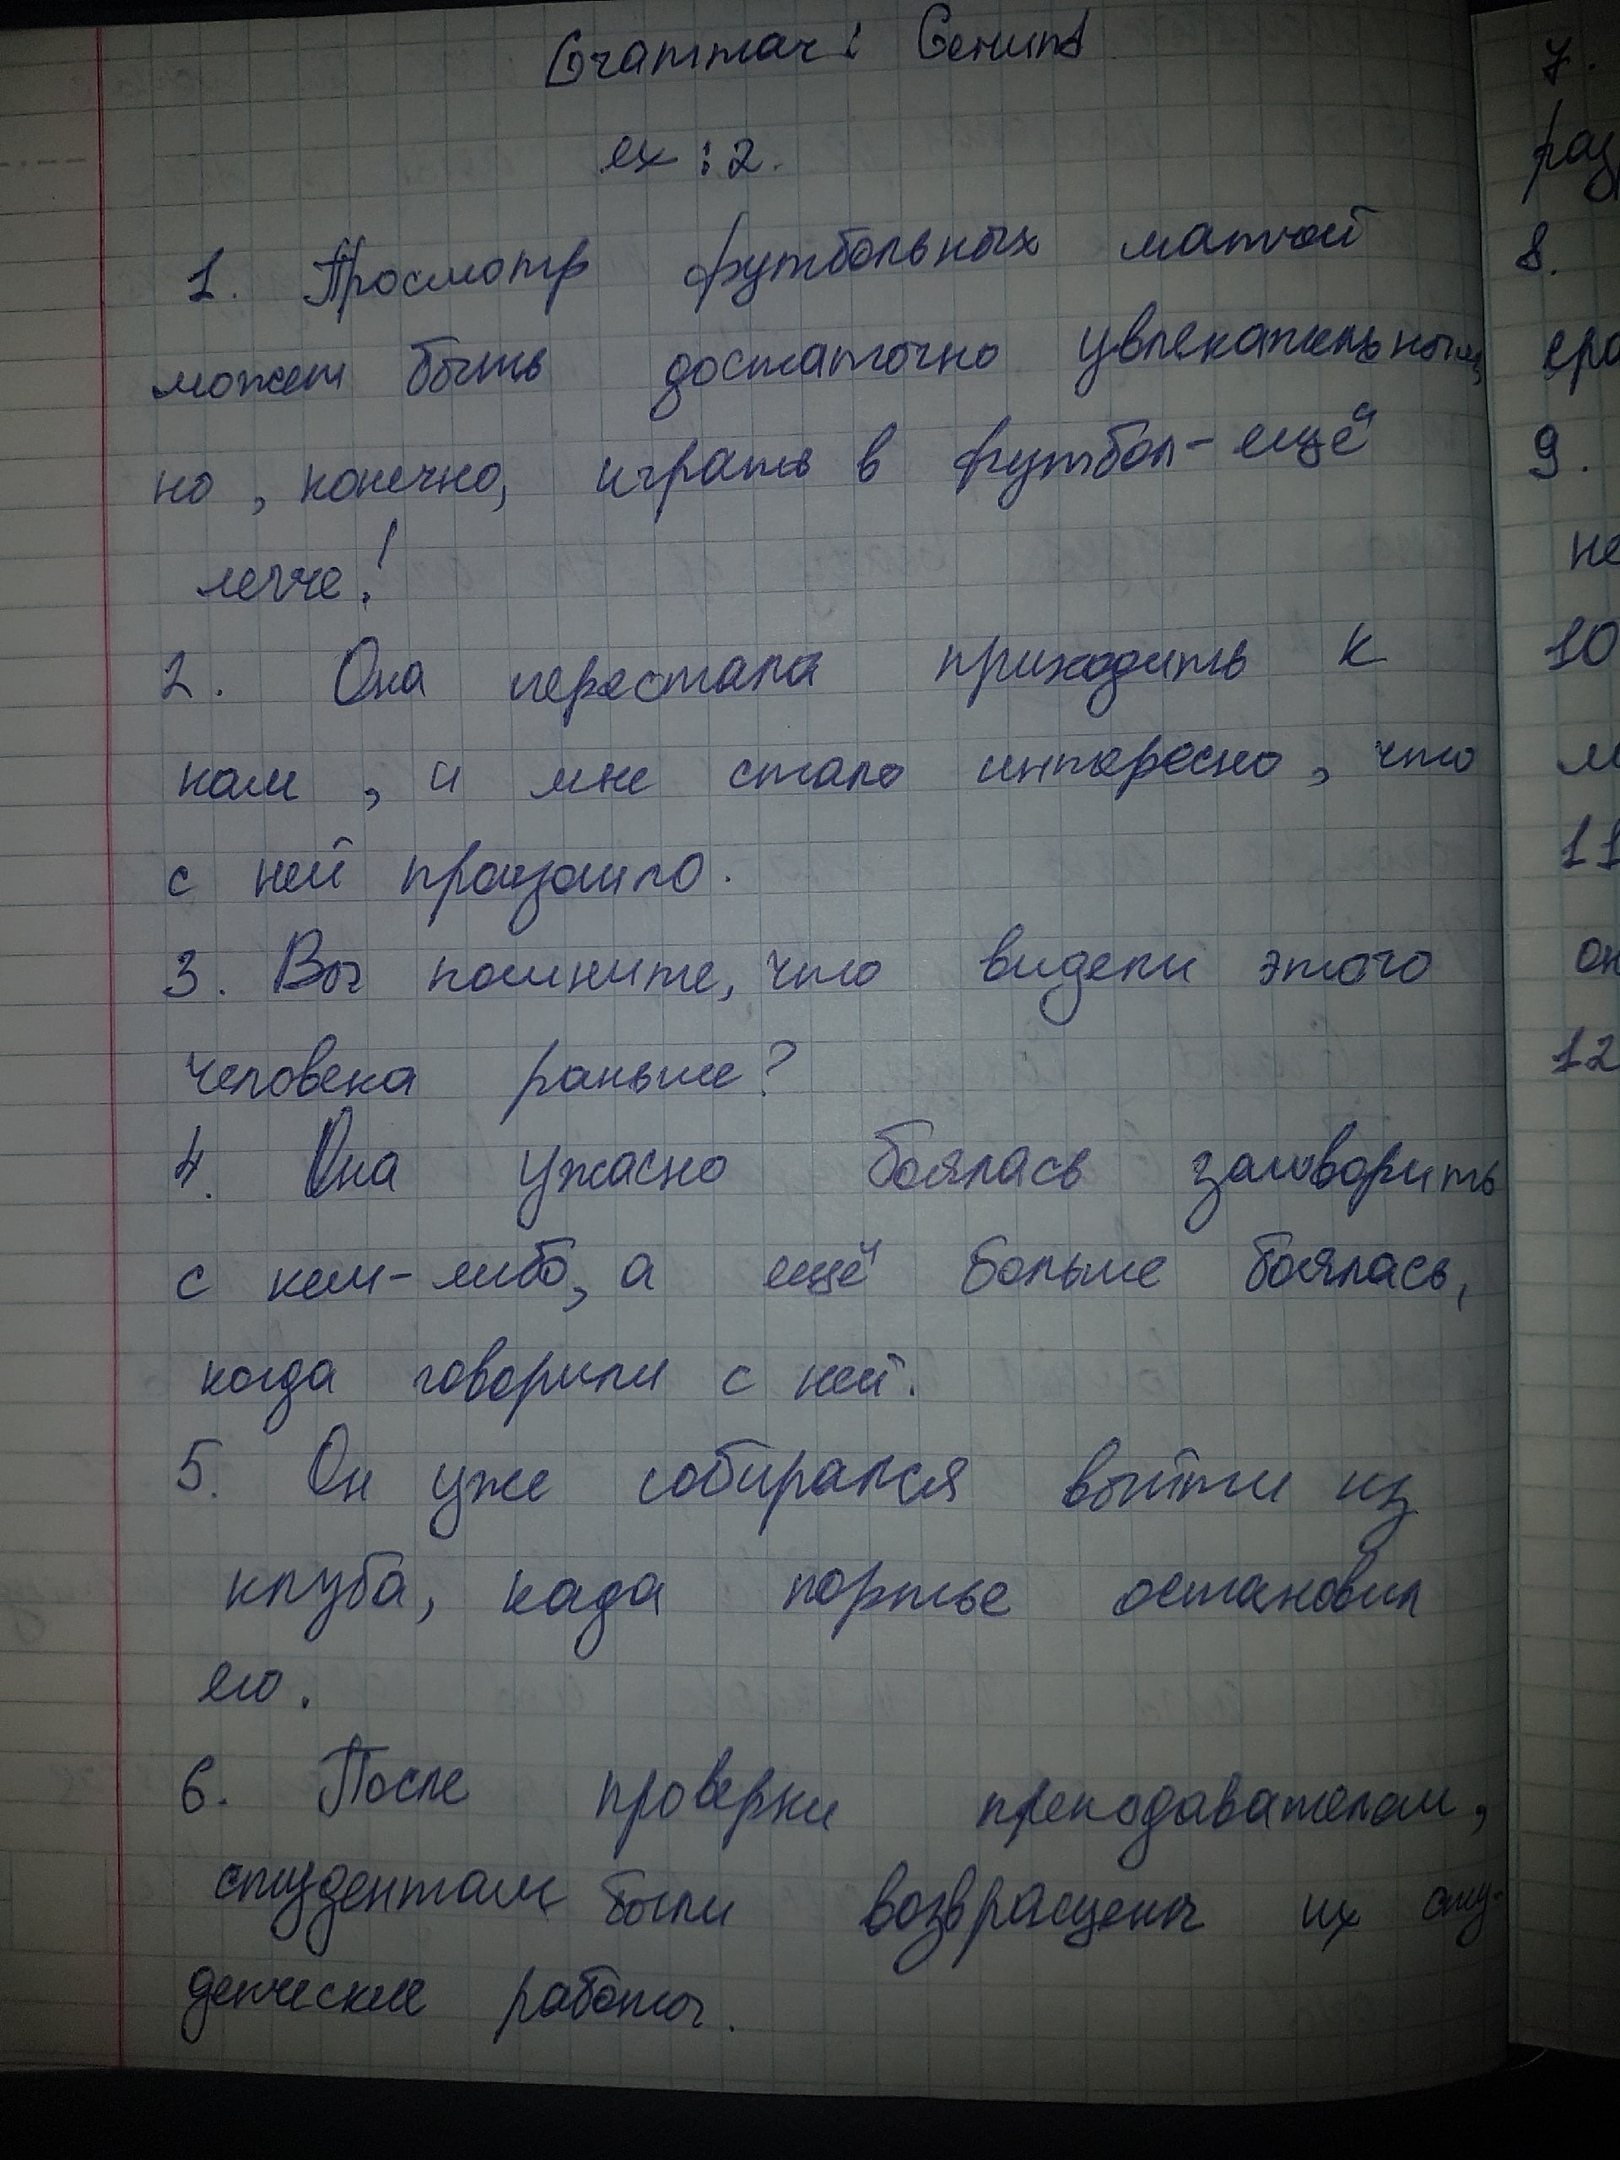 Grammar: Gerund
ex: 2.
1. Просмотр футбольных матчей
может быть достаточно увлекательным,
но, конечно, играть в футбол - ещё
легче!
2. Она перестала приходить к
нам, и мне стало интересно, что
с ней произошло.
3. Вы помните, что видели этого
человека раньше?
4. Она ужасно боялась заговорить
с кем-либо, а ещё больше боялась,
когда говорили с ней.
5. Он уже собирался выйти из
клуба, када портье остановил
его.
6. После проверки преподавателем,
студентам были возвращены их сту-
денческие работы.
7.
раз
8.
9.
не
10
м
11
он
12